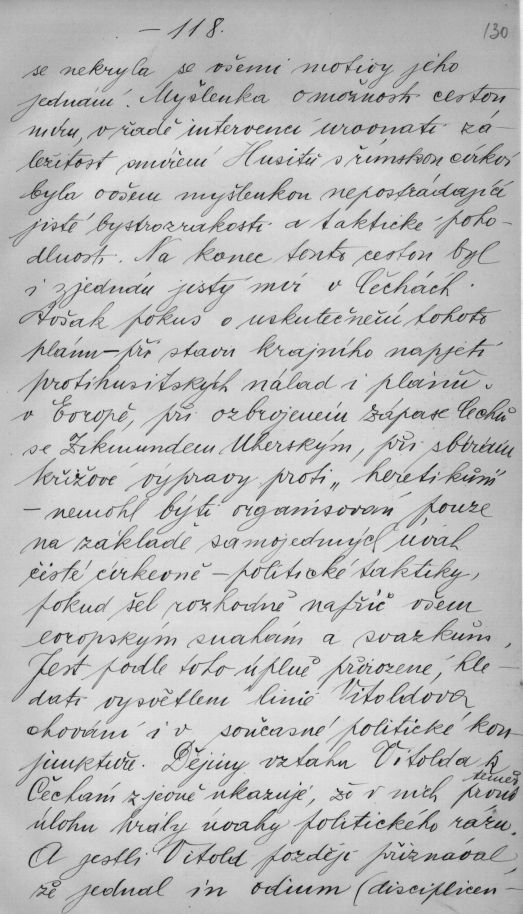 — 118.
130
se nekryla se všemi motivy jeho
jednání. Myšlenka o možnosti cestou
míru, v řadě intervencí urovnati zá-
ležitost smíření Husitů s římskou církví
byla ovšem myšlenkou nepostrádající
jisté bystrozrakosti a taktické poho-
dlnosti. Na konec touto cestou byl
i zjednán jistý mír v Čechách.
Avšak pokus o uskutečnění tohoto
plánu — při stavu krajního napjetí
protihusitských nálad i plánů
v Evropě, při ozbrojeném zápase Čechů
se Zikmundem Uherským, při sbírání
křížové výpravy proti „heretikům"
— nemohl býti organisován pouze
na základě samojedných úvah
čistě církevně — politické taktiky,
pokud šel rozhodně napříč všem
evropským snahám a svazkům.
Jest podle toho úplně přirozené, hle-
dati vysvětlení linie Vitoldova
chování i v současné politické kon-
junktuře. Dějiny vztahu Vitolda k
Čechám zjevně ukazují, že v nich téměř prvou
úlohu hrály úvahy politického rázu.
A jestli Vitold později přiznával,
že jednal in odium (disciplicen-